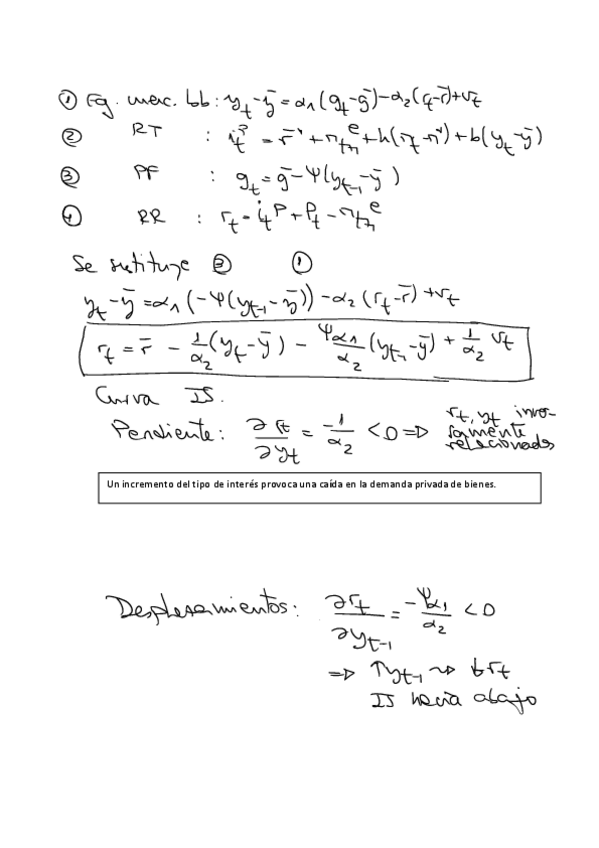 ① Eq. merc. bb: y_t - ȳ = α₁(g_t - ḡ) - α₂(r_t - r̄) + v_t
② RT : i_t^P = r̄* + π_{t+1}^e + h(π_t - π*) + b(y_t - ȳ)
③ PF : g_t = ḡ - ψ(y_{t-1} - ȳ)
④ RR : r_t = i_t^P + ρ_t - π_{t+1}^e
Se sustituye ③ ①
y_t - ȳ = α₁(-ψ(y_{t-1} - ȳ)) - α₂(r_t - r̄) + v_t
r_t = r̄ - 1/α₂ (y_t - ȳ) - ψα₁/α₂ (y_{t-1} - ȳ) + 1/α₂ v_t
Curva IS.
Pendiente: ∂r_t/∂y_t = -1/α₂ < 0 ⇒ r_t, y_t inver-
samente
relacionados
Un incremento del tipo de interés provoca una caída en la demanda privada de bienes.
Desplazamientos: ∂r_t/∂y_{t-1} = -ψα₁/α₂ < 0
⇒ ↑y_{t-1} ⇝ ↓r_t
IS hacia abajo